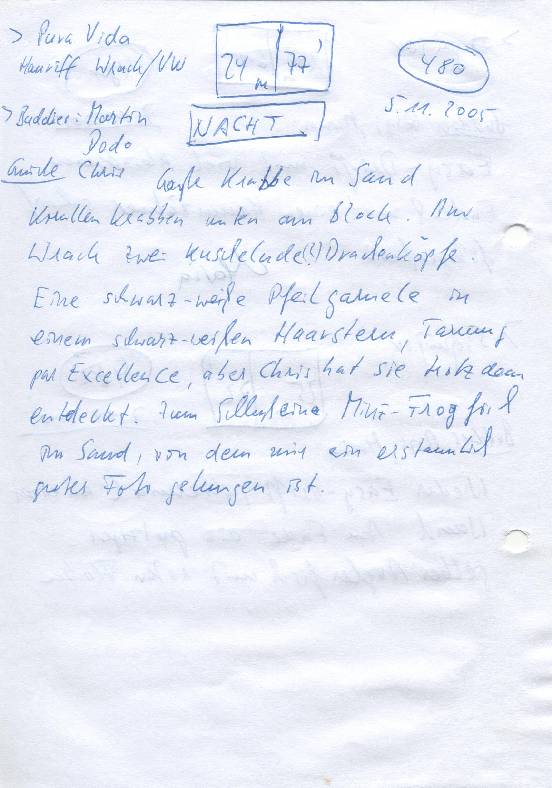 > Pura Vida
Hausriff Wrack/VW
24 m 77'
480
5.11.2005
> Buddies: Martin
Dodo
NACHT
Guide Chris Große Krabbe im Sand
Korallenkrabben unten am Block. Am
Wrack zwei kuschelnde(!) Drachenköpfe.
Eine schwarz-weiße Pfeilgarnele in
einem schwarz-weißen Haarstern, Tarnung
par Excellence, aber Chris hat sie trotzdem
entdeckt. Zum Schluss eine Mini-Frogfisch
im Sand, von dem mir ein erstaunlich
gutes Foto gelungen ist.